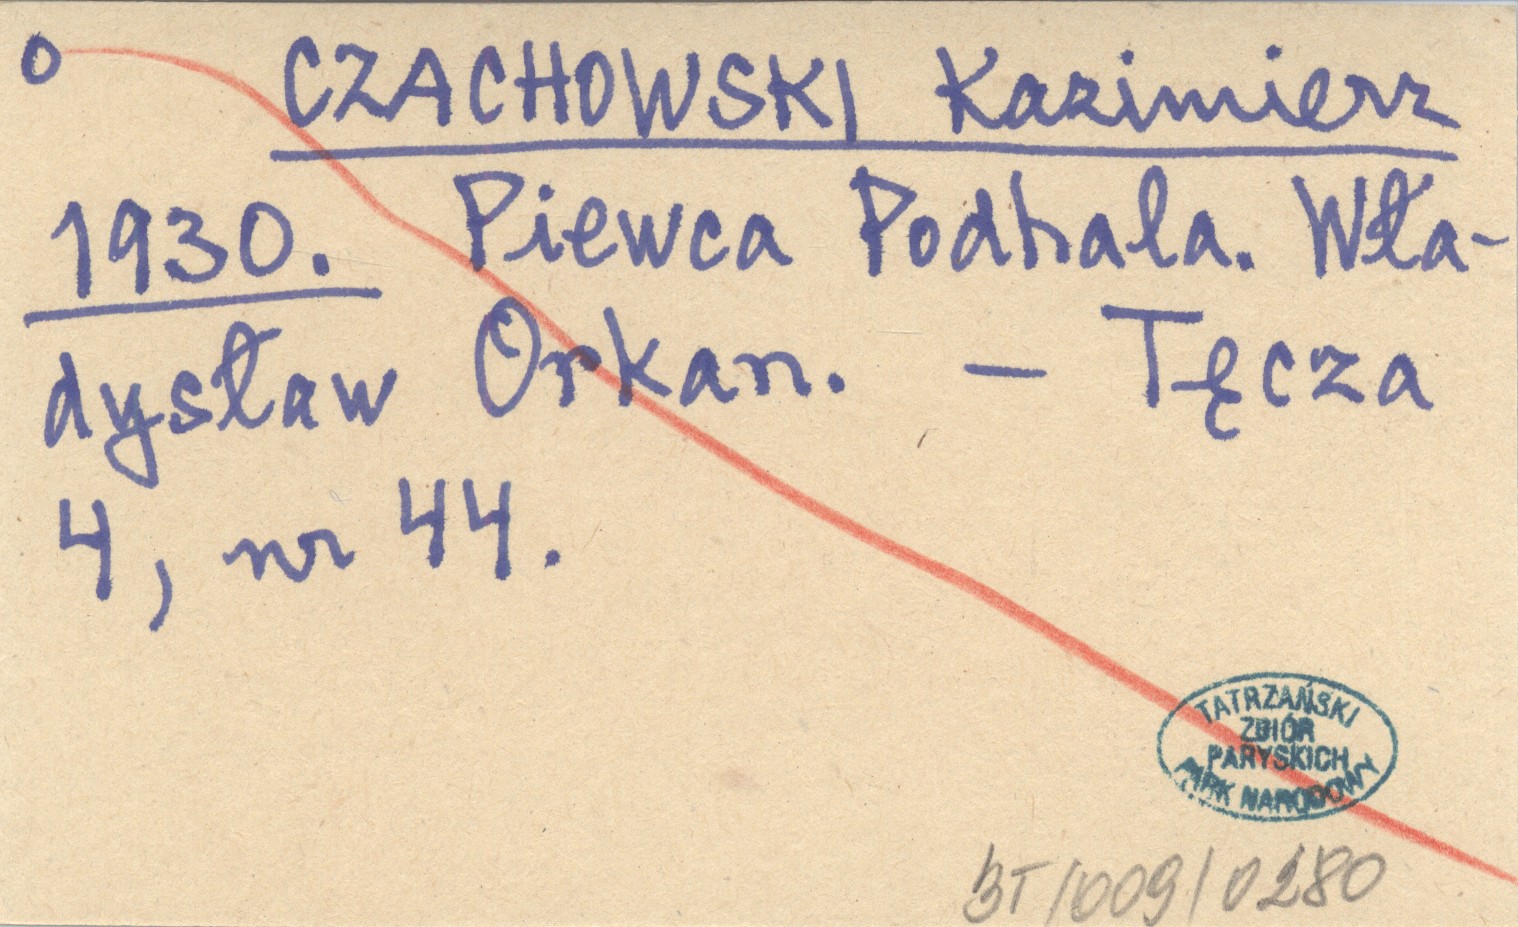 o CZACHOWSKI Kazimierz
1930. Piewca Podhala. Wła-
dysław Orkan. – Tęcza
4, nr 44.
TATRZAŃSKI
ZBIÓR
PARYSKICH
PARK NARODOWY
BT/009/0280